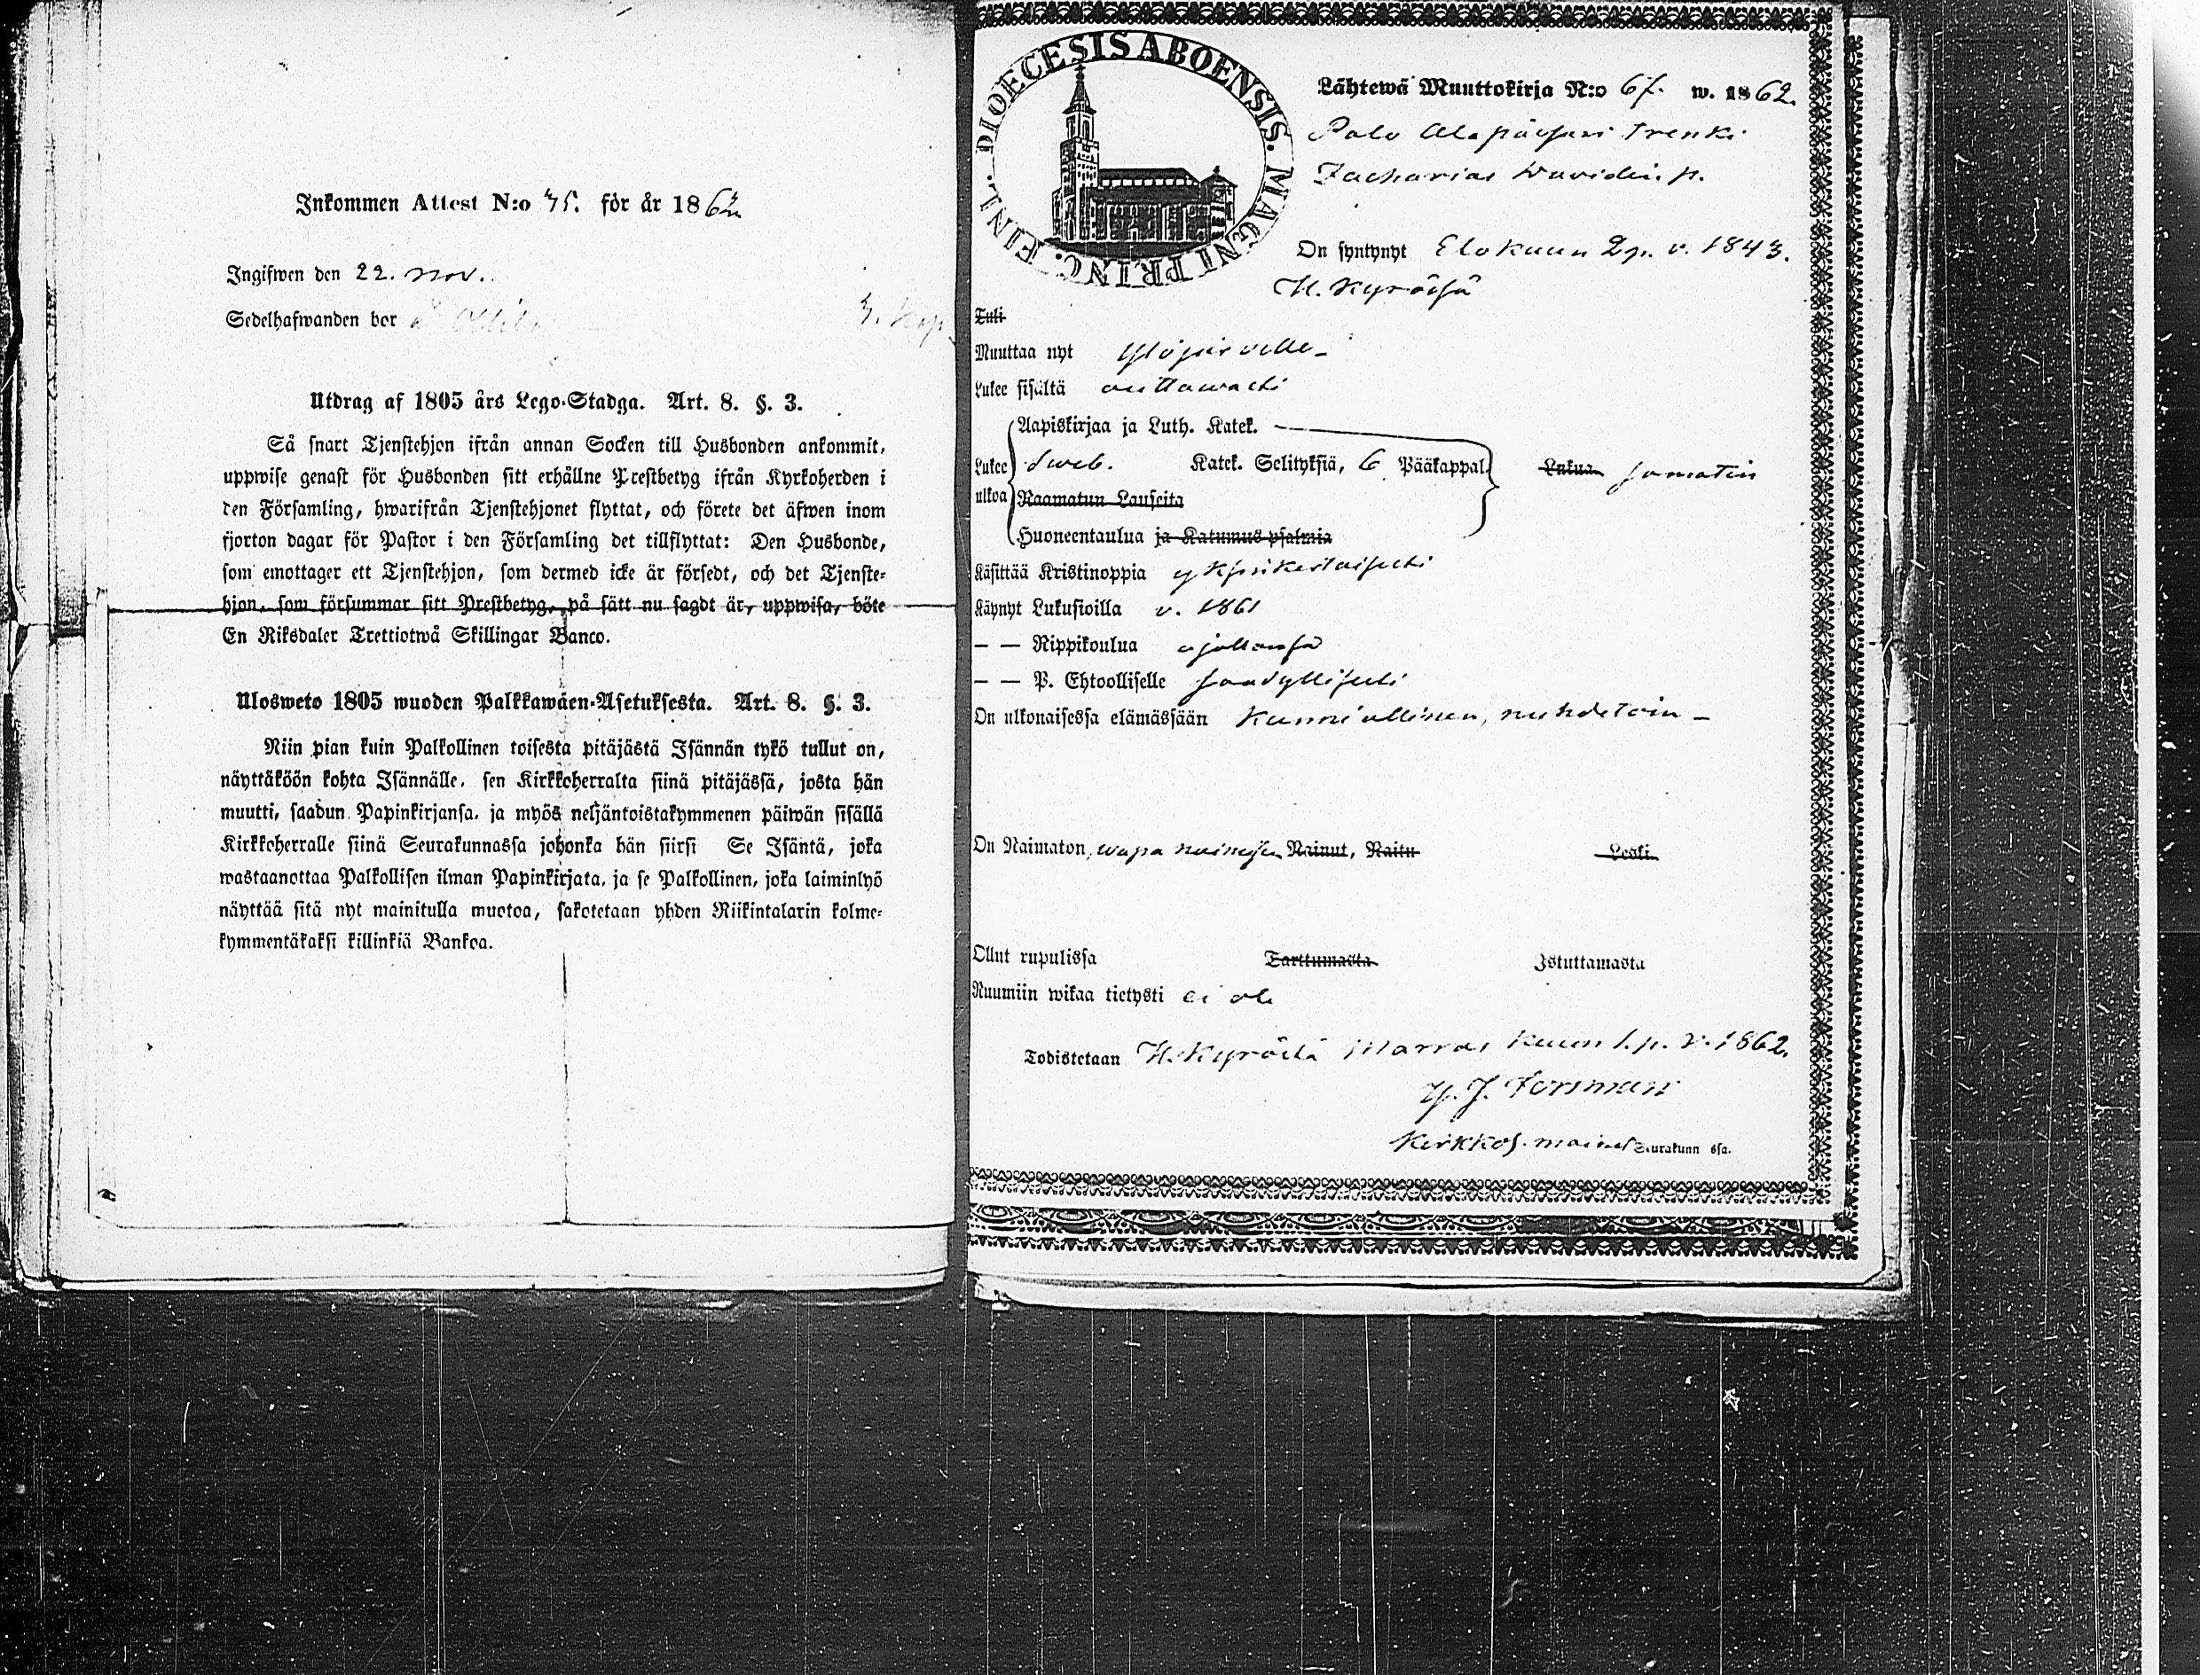 Inkommen Attest N:o 75. för år 1862
Ingifwen den 22. nov.
Sedelhafwanden bor
Utdrag af 1805 års Lego-Stadga. Art. 8. §. 3.
Så snart Tjenstehjon ifrån annan Socken till Husbonden ankommit,
uppwise genast för Husbonden sitt erhållne Prestbetyg ifrån Kyrkoherden i
den Församling, hwarifrån Tjenstehjonet flyttat, och förete det äfwen inom
fjorton dagar för Pastor i den Församling det tillflyttat: Den Husbonde,
som emottager ett Tjenstehjon, som dermed icke är försedt, och det Tjenste-
hjon, som försummar sitt Prestbetyg, på sätt nu sagdt är, uppwisa, böte
En Riksdaler Trettiotwå Skillingar Banco.
Ulosweto 1805 wuoden Palkkawäen-Asetuksesta. Art. 8. §. 3.
Niin pian kuin Palkollinen toisesta pitäjästä Isännän tykö tullut on,
näyttäköön kohta Isännälle, sen Kirkkoherralta siinä pitäjässä, josta hän
muutti, saadun Papinkirjansa, ja myös neljäntoistakymmenen päiwän sisällä
Kirkkoherralle siinä Seurakunnassa johonka hän siirsi Se Isäntä, joka
wastaanottaa Palkollisen ilman Papinkirjata, ja se Palkollinen, joka laiminlyö
näyttää sitä nyt mainitulla muotoa, sakotetaan yhden Riikintalarin kolme-
kymmentäkaksi killinkiä Bankoa.
DIOECESIS ABOENSIS. MAGNI PRINC. FINL.
Lähtewä Muuttokirja N:o 67. w. 1862.
Palo trenki
Zacharias Davidin p.
On syntynyt Elokuun 2 p. v. 1843.
H. Kyrössä
Tuli
Muuttaa nyt Ylöjärvelle
Lukee sisältä auttawasti
Aapiskirjaa ja Luth. Katek.
Lukee Sveb. Katek. Selityksiä, 6 Pääkappal. Lukua
ulkoa Raamatun Lauseita
Huoneentaulua ja Katumus psalmia
Käsittää Kristinoppia yksinkertaisesti
Käynyt Lukusioilla v. 1861
— — Rippikoulua ajallansa
— — P. Ehtoolliselle säädyllisesti
On ulkonaisessa elämässään kunniallinen, nuhdetoin
On Naimaton, wapa naimisen Nainut, Naitu Leski
Ollut rupulissa Tarttumasta Istuttamasta
Ruumiin wikaa tietysti ei ole
Todistetaan H. Kyröstä Marras kuun 1. p. v. 1862.
Y. J. Forsman
Kirkkoh. Seurakunn ssa.